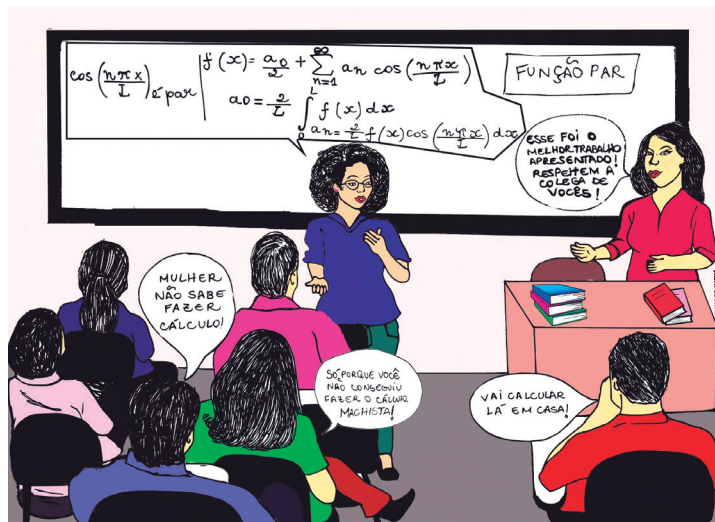 cos(nπx/L) é par
f(x) = a0/2 + ∑ n=1 ∞ an cos(nπx/L)
a0 = 2/L ∫ 0 L f(x) dx
an = 2/L f(x) cos(nπx/L) dx
FUNÇÃO PAR
ESSE FOI O
MELHOR TRABALHO
APRESENTADO!
RESPEITEM A
COLEGA DE
VOCÊS!
MULHER
NÃO SABE
FAZER
CÁLCULO!
SÓ PORQUE VOCÊ
NÃO CONSEGUIU
FAZER O CÁLCULO
MACHISTA!
VAI CALCULAR
LÁ EM CASA!